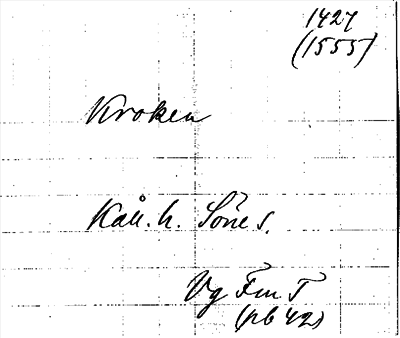 1427
(1555)
Kroken
Kåll. h. Söne s.
Vg Fm T
(pb 42)